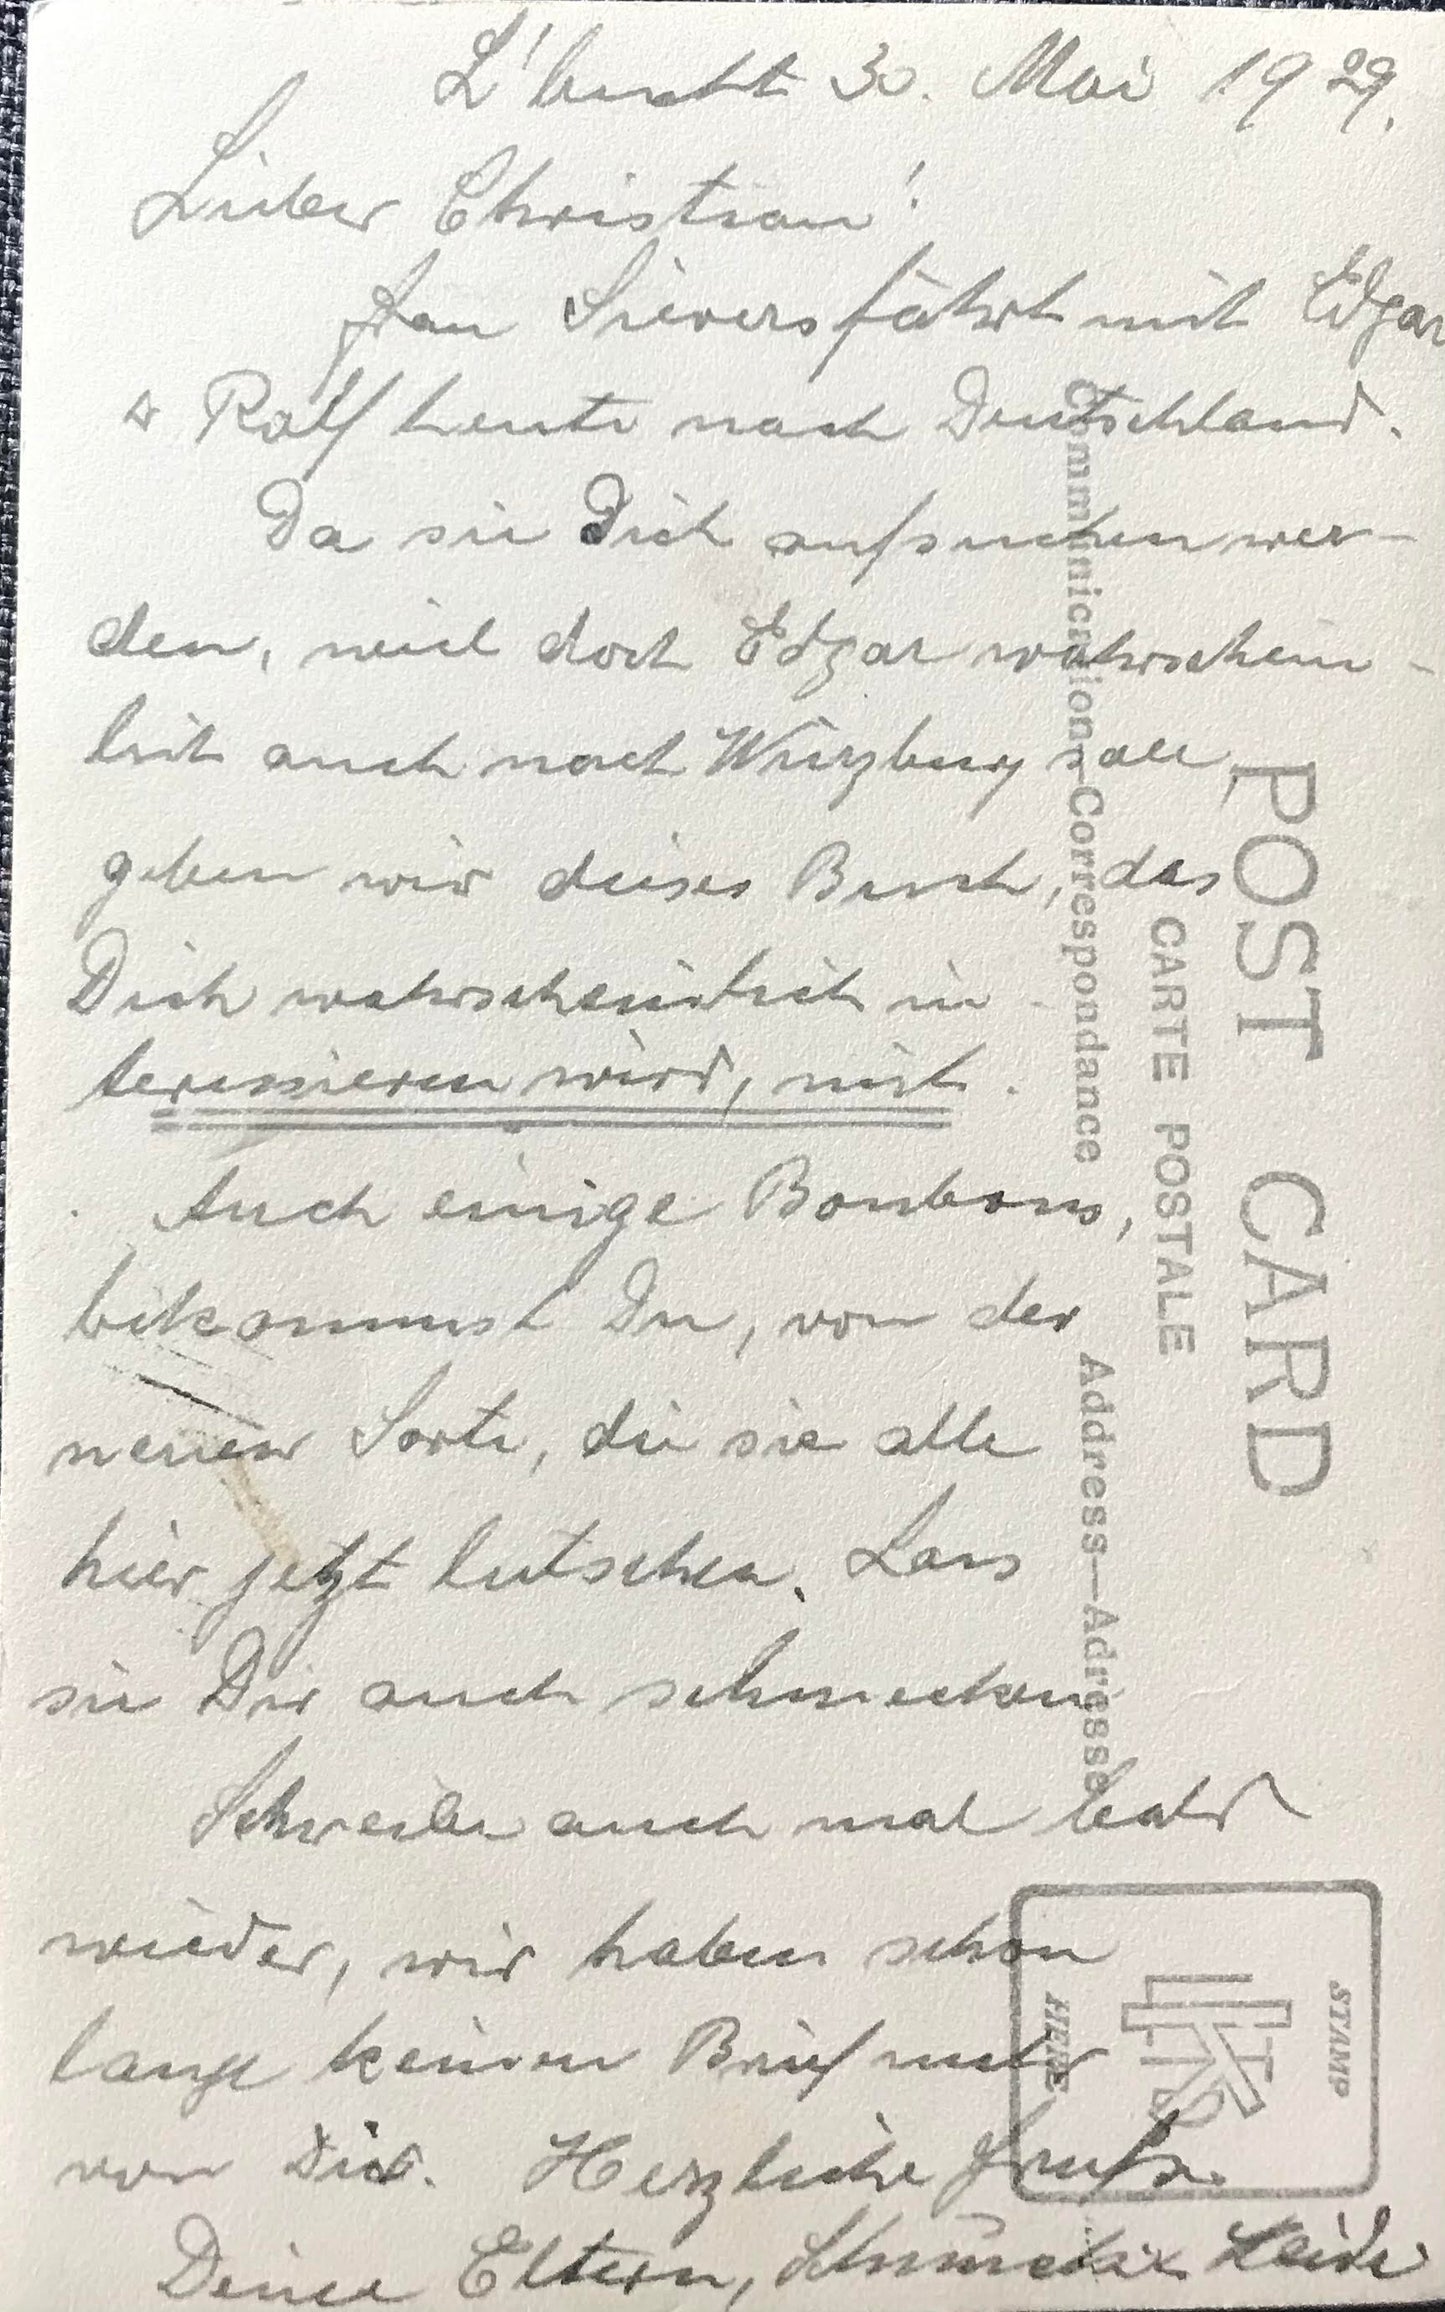 L'bucht 30. Mai 1929.
Lieber Christian!
Frau Sievers fährt mit Edgar
& Ralf heute nach Deutschland.
Da sie Dich aufsuchen wer-
den, weil doch Edgar wahrschein-
lich auch nach Würzburg soll,
geben wir dieses Buch, das
Dich wahrscheinlich in-
teressieren wird, mit.
Auch einige Bonbons,
bekommst Du, von der
neuen Sorte, die sie alle
hier jetzt lutschen. Lass
sie Dir auch schmecken.
Schreibe auch mal bald
wieder, wir haben schon
lange keinen Brief mehr
von Dir. Herzliche Grüße
Deine Eltern, &
POST CARD
CARTE POSTALE
Communication—Correspondance
Address—Adresse
STAMP
HERE